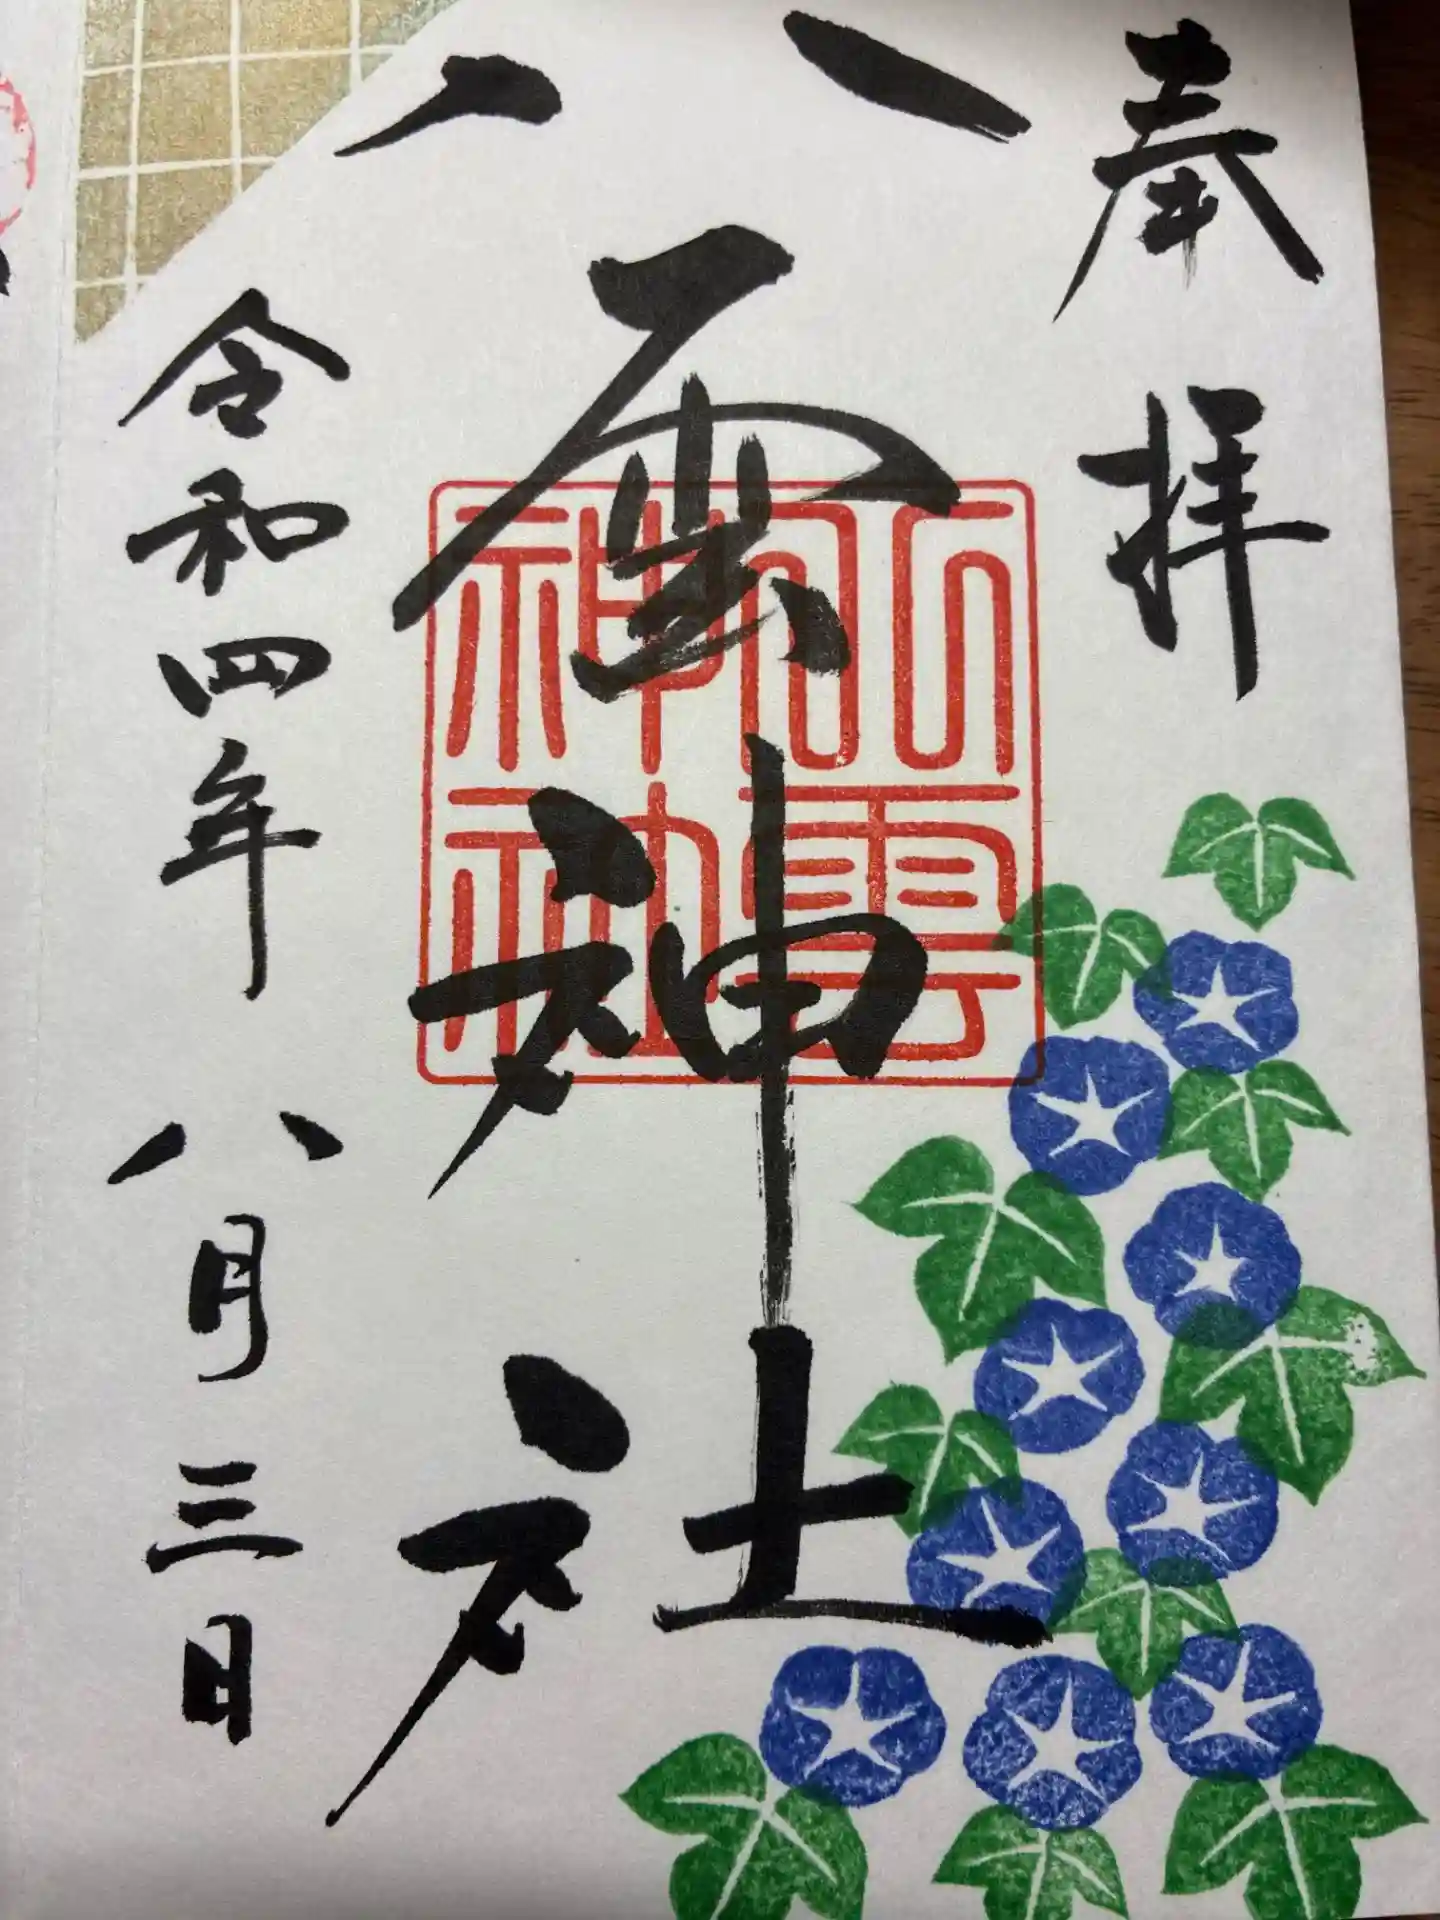 奉拝
八雲神社
八雲神社
令和四年八月三日